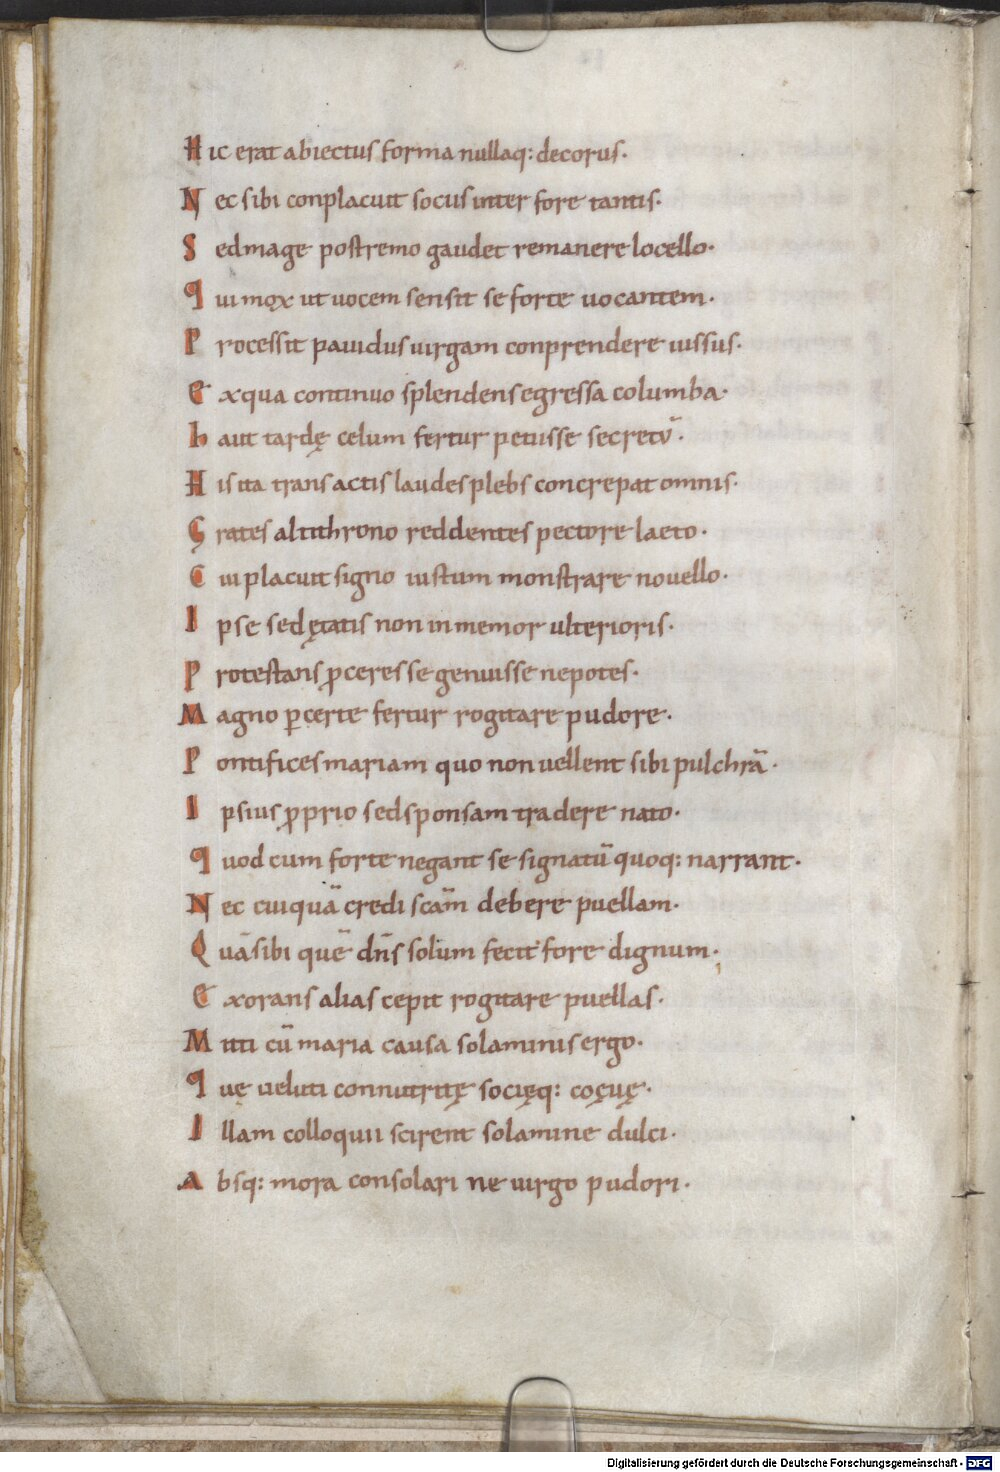 Hic erat abiectus forma nullaq: decorus.
Nec sibi conplacuit socus inter fore tantis.
Sed mage postremo gaudet remanere locello.
Qui mox ut uocem sensit se forte uocantem.
Processit pauidus uirgam conprendere iussus.
Exqua continuo splendens egressa columba.
haut tardę celum fertur petiisse secretū.
His ita transactis laudes plebs concrepat omnis.
Grates altithrono reddentes pectore laeto.
Cui placuit signo iustum monstrare nouello.
Ipse sed ętatis non inmemor ulterioris.
Protestans ꝓceres se genuisse nepotes.
Magno ꝑcerte fertur rogitare pudore.
Pontifices mariam quo non uellent sibi pulchrā.
Ipsius ꝓprio sed sponsam tradere nato.
Quod cum forte negant se signatū quoq: narrant.
Nec cuiquā credi scām debere puellam.
Quā sibi quē dn̄s solum fecit fore dignum.
Exorans alias cepit rogitare puellas.
Mitti cū maria causa solaminis ergo.
Quę ueluti connutritę socięq: coęuę.
Illam colloquii scirent solamine dulci.
Absq: mora consolari ne uirgo pudori.
Digitalisierung gefördert durch die Deutsche Forschungsgemeinschaft - DFG